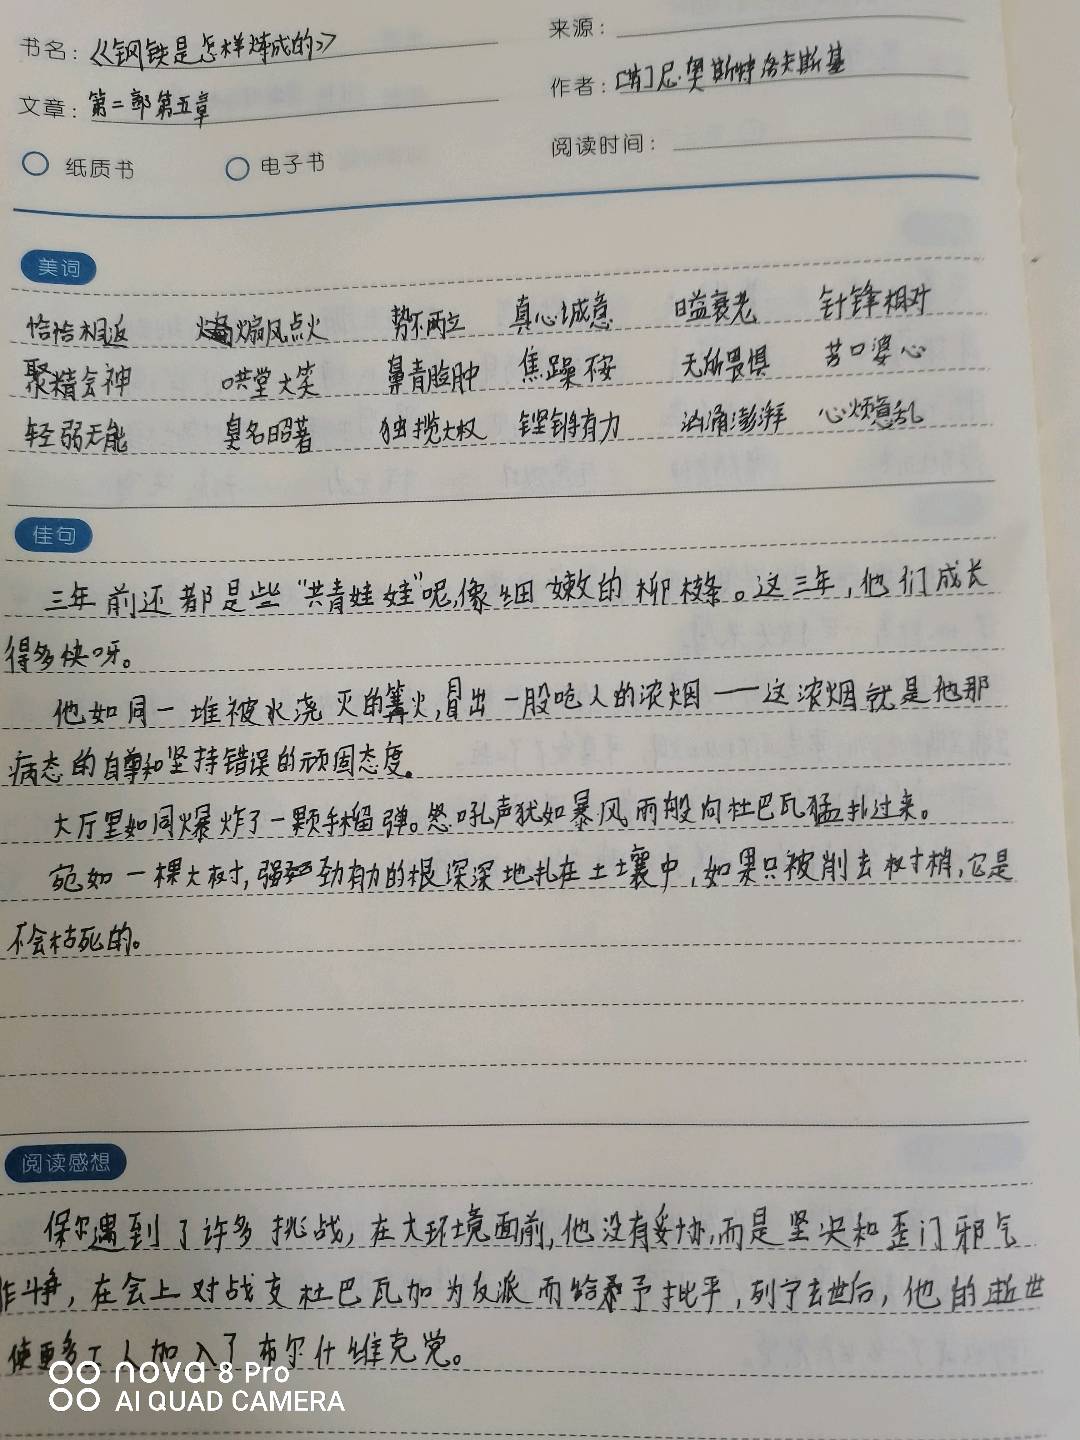 书名：《钢铁是怎样炼成的》
来源：
文章：第二部第五章
作者：[苏]尼·奥斯特洛夫斯基
纸质书 电子书
阅读时间：
美词
恰恰相返 煽风点火 势不两立 真心诚意 日益衰老 针锋相对
聚精会神 哄堂大笑 鼻青脸肿 焦躁不安 无所畏惧 苦口婆心
轻弱无能 臭名昭著 独揽大权 铿锵有力 汹涌澎湃 心烦意乱
佳句
三年前还都是些“共青娃娃”呢,像细嫩的柳条。这三年,他们成长
得多快呀。
他如同一堆被水浇灭的篝火,冒出一股呛人的浓烟——这浓烟就是他那
病态的自尊和坚持错误的顽固态度。
大厅里如同爆炸了一颗手榴弹。怒吼声犹如暴风雨般向杜巴瓦猛扑过来。
宛如一棵大树,强劲有力的根深深地扎在土壤中,如果只被削去树梢,它是
不会枯死的。
阅读感想
保尔遇到了许多挑战,在大环境面前,他没有妥协,而是坚决和歪门邪气
作斗争,在会上对战友杜巴瓦加为反派而给予批平,列宁去世后,他的逝世
使更多工人加入了布尔什维克党。
nova 8 Pro
AI QUAD CAMERA